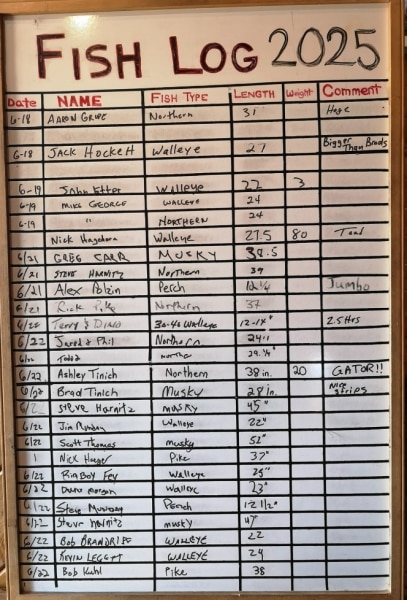 FISH LOG 2025
Date NAME FISH TYPE LENGTH Weight Comment
6-18 AARON Northern 31 Huge
6-18 JACK Hockett Walleye 27 Bigger Than Brads
6-19 John Etter Walleye 22 3
6-19 MIKE GEORGE WALLEYE 24
6-19 " NORTHERN 24
Nick Hagedorn Walleye 27.5 80 Toad
6/21 GREG CARR MUSKY 38.5
6/21 STEVE Northern 39
6/21 Alex Polzin Perch 12 1/4 Jumbo
6/21 Rick Northern 37
Terry & 30-40 Walleye 12-14" 2.5 Hrs
6/22 Jared & Phil Northern 24"
6/22 Todd
6/22 Ashley Tinich Northern 38 in. 20 GATOR!!
6/22 Brad Tinich Musky 28 in. Nice Strips
Harnitz musky 45"
6/22 Jim Munday Walleye 22"
6/22 Scott Thomas musky 52"
Nick Hager Pike 37"
6/22 Fey Walleye 25"
6/22 morgan Walleye 23"
6/22 Steve Munday Perch 12 1/2"
6/22 Steve Harnitz musky 47"
6/22 Bob WALLEYE 22
6/22 KEVIN LEGGETT WALLEYE 24
6/22 Bob Kuhl Pike 38